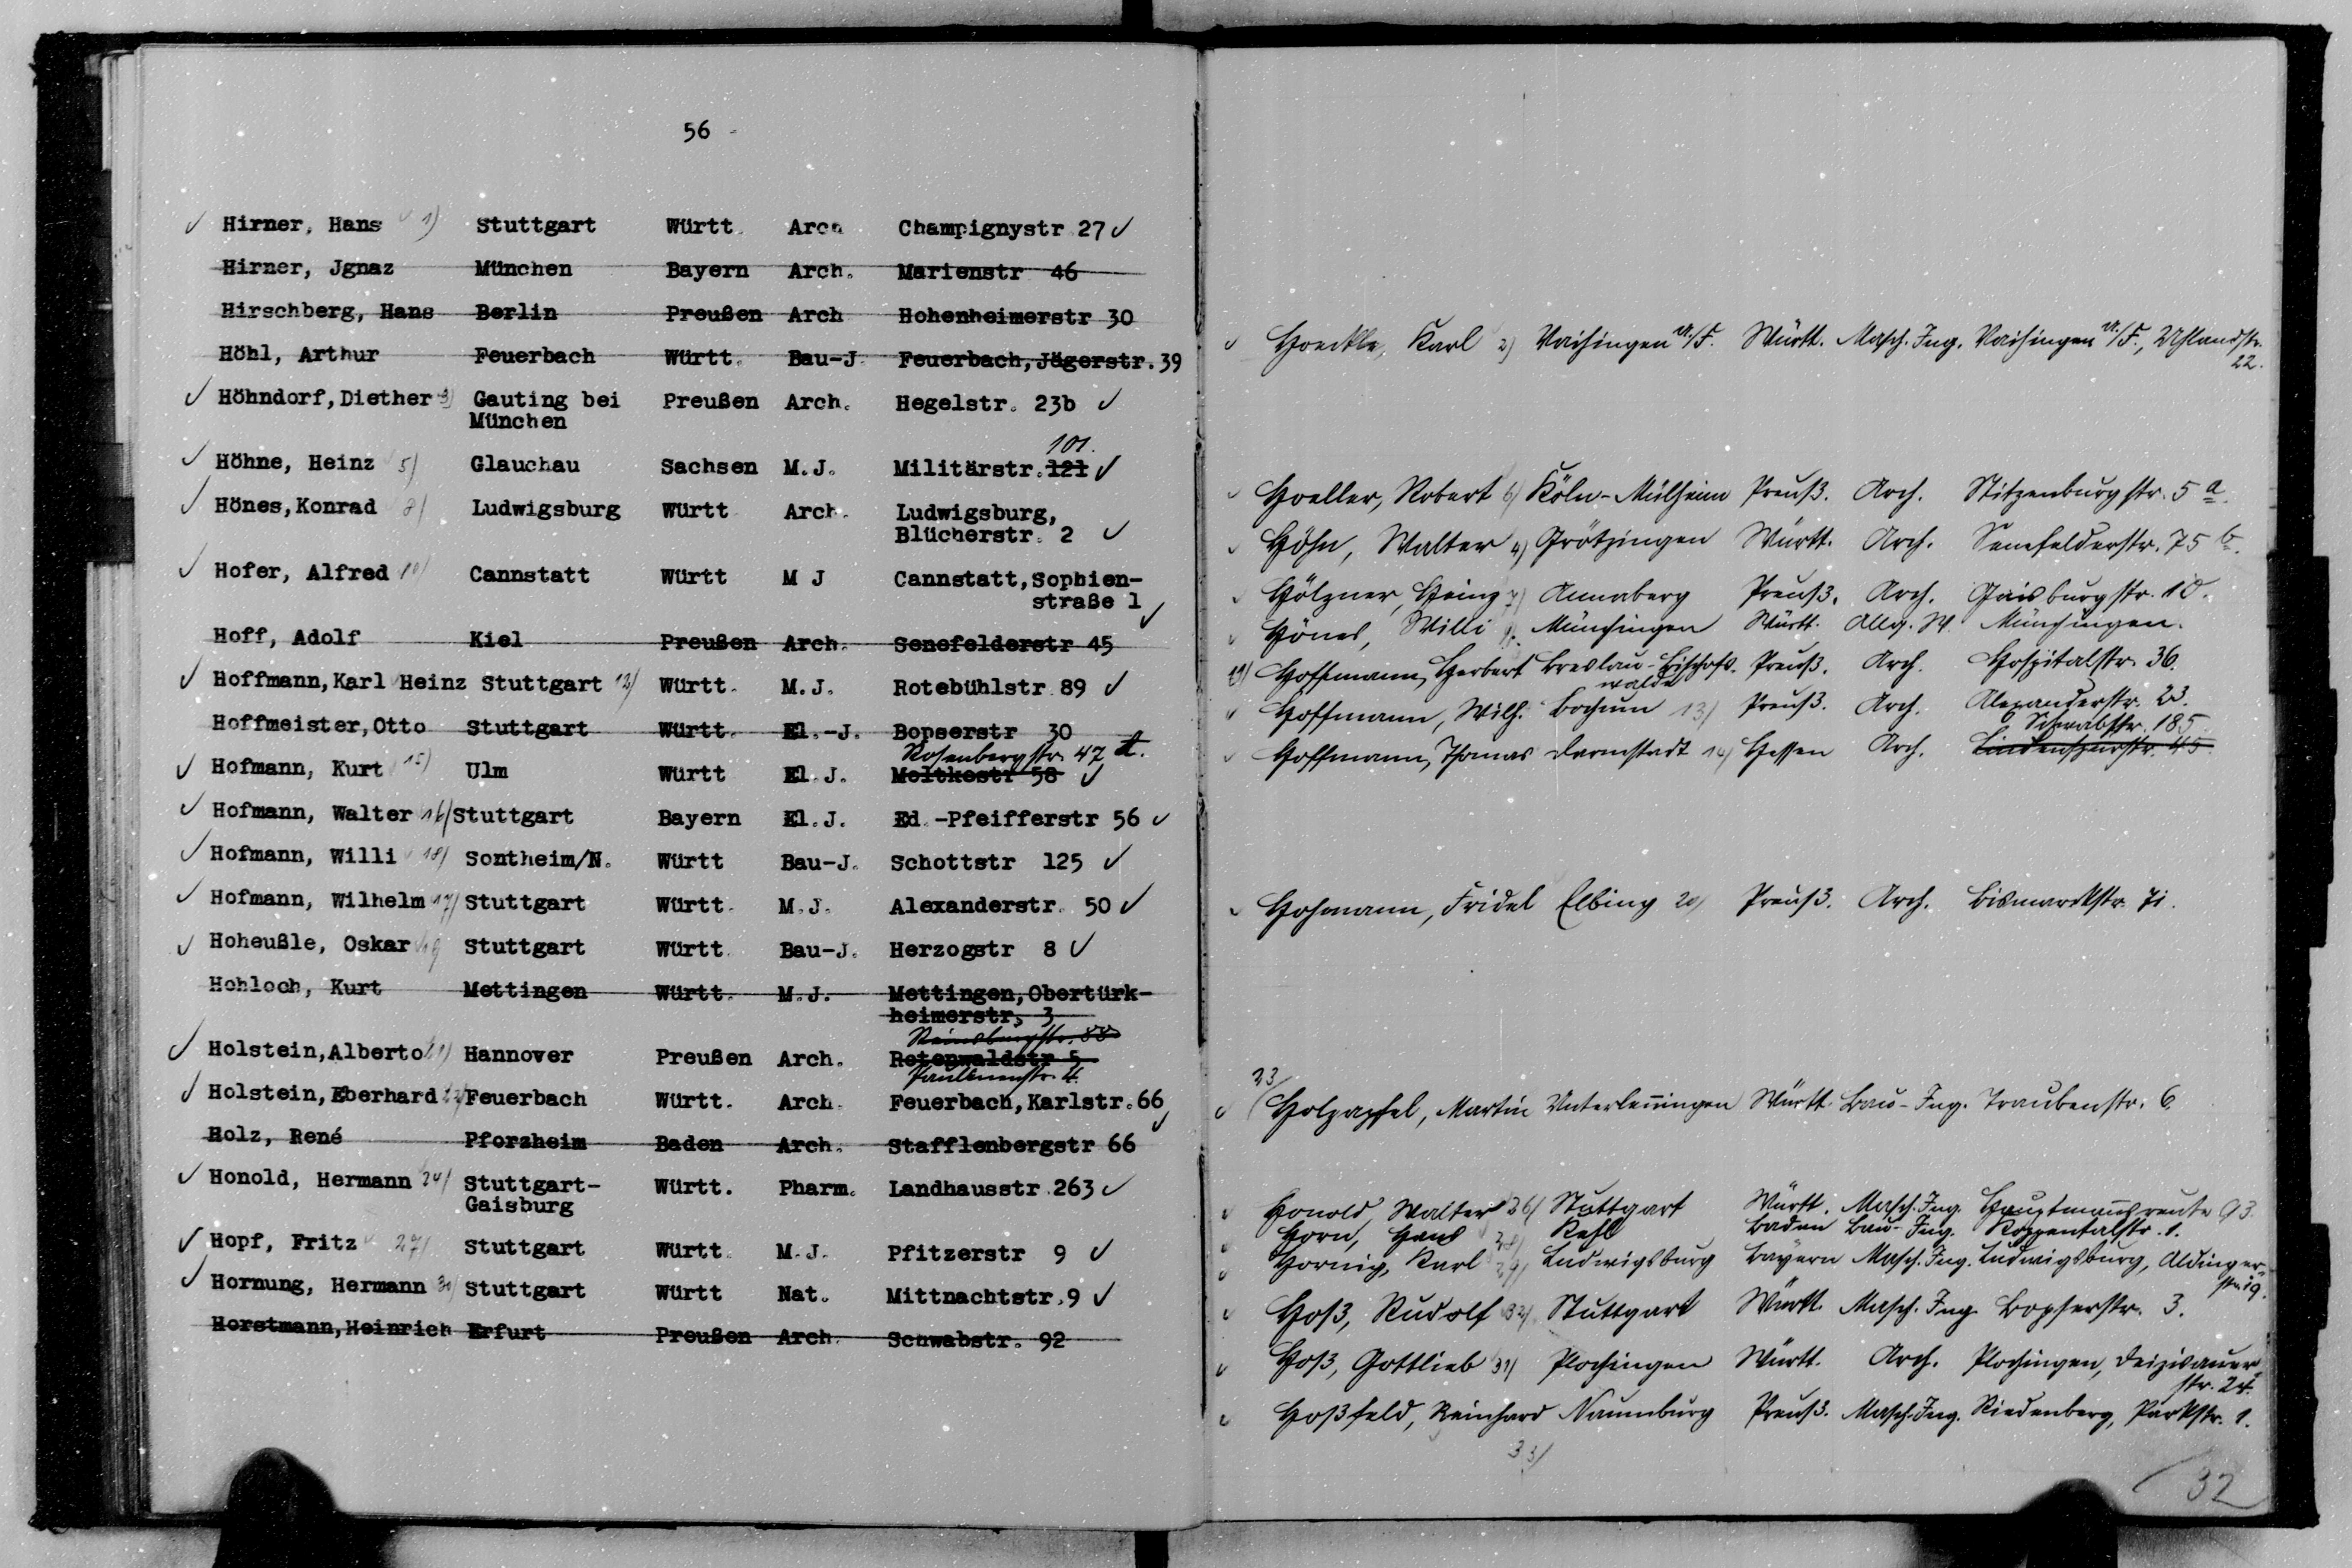 56
Hirner, Hans 1) Stuttgart Württ. Arch Champignystr 27
Hirner, Jgnaz München Bayern Arch. Marienstr 46
Hirschberg, Hans Berlin Preußen Arch Hohenheimerstr 30
Höhl, Arthur Feuerbach Württ. Bau-J. Feuerbach, Jägerstr. 39
Höhndorf, Diether 3) Gauting bei Preußen Arch. Hegelstr. 23b
München
101.
Höhne, Heinz 5) Glauchau Sachsen M.J. Militärstr. 121
Hönes, Konrad 8) Ludwigsburg Württ Arch. Ludwigsburg,
Blücherstr. 2
Hofer, Alfred 10) Cannstatt Württ M J Cannstatt, Sophien-
straße 1
Hoff, Adolf Kiel Preußen Arch. Senefelderstr 45
Hoffmann, Karl Heinz Stuttgart 12) Württ. M.J. Rotebühlstr. 89
Hoffmeister, Otto Stuttgart Württ. El.-J. Bopserstr 30
Rosenbergstr. 47
Hofmann, Kurt 15) Ulm Württ El.J. Moltkestr 58
Hofmann, Walter 16) Stuttgart Bayern El.J. Ed.-Pfeifferstr 56
Hofmann, Willi 18) Sontheim/N. Württ Bau-J. Schottstr 125
Hofmann, Wilhelm 17) Stuttgart Württ. M.J. Alexanderstr. 50
Hoheußle, Oskar 19 Stuttgart Württ. Bau-J. Herzogstr 8
Hohloch, Kurt Mettingen Württ. M.J. Mettingen, Obertürk-
heimerstr. 3
Reinsburgstr. 88
Holstein, Alberto 21) Hannover Preußen Arch. Rotenwaldstr 5
Paulinenstr. 4.
Holstein, Eberhard 22) Feuerbach Württ. Arch. Feuerbach, Karlstr. 66
Holz, René Pforzheim Baden Arch. Stafflenbergstr 66
Honold, Hermann 24) Stuttgart- Württ. Pharm. Landhausstr. 263
Gaisburg
Hopf, Fritz 27) Stuttgart Württ. M.J. Pfitzerstr 9
Hornung, Hermann 30) Stuttgart Württ Nat. Mittnachtstr. 9
Horstmann, Heinrich Erfurt Preußen Arch. Schwabstr. 92
Hoeckle, Karl 2) Vaihingen a./F. Württ. Masch. Ing. Vaihingen a./F., Uhlandstr.
22.
Hoeller, Robert 6) Köln-Mülheim Preuß. Arch. Stitzenburgstr. 5 a.
Höhn, Walter 4) Grötzingen Württ. Arch. Senefelderstr. 75 b.
Hölzner, Heinz 7) Annaberg Preuß. Arch. Gaisburgstr. 10.
Hönes, Willi 9) Münchingen Württ. Allg. W. Münchingen.
11) Hoffmann, Herbert Breslau-Bischofs- Preuß. Arch. Hospitalstr. 36.
walde
Hoffmann, Wilh. Bochum 13) Preuß. Arch. Alexanderstr. 23.
Schwabstr. 185
Hoffmann, Thomas Darmstadt 14) Hessen Arch. Lindenspürstr. 45.
Hohmann, Fridel Elbing 20) Preuß. Arch. Bismarckstr. 71.
23
Holzapfel, Martin Unterlenningen Württ. Bau-Ing. Traubenstr. 6.
Honold, Walter 26) Stuttgart Württ. Masch. Ing. Hauptmannsreute 93.
Horn, Hans 28) Kehl Baden Bau-Ing. Koppentalstr. 1.
Hornig, Karl 29) Ludwigsburg Bayern Masch. Ing. Ludwigsburg, Aldinger-
str. 19.
Hoß, Rudolf 32) Stuttgart Württ. Masch. Ing. Bopserstr. 3.
Hoß, Gottlieb 31) Plochingen Württ. Arch. Plochingen, Deizisauer-
str. 24.
Hoßfeld, Reinhard Naumburg Preuß. Masch. Ing. Riedenberg, Parkstr. 1.
33)
32